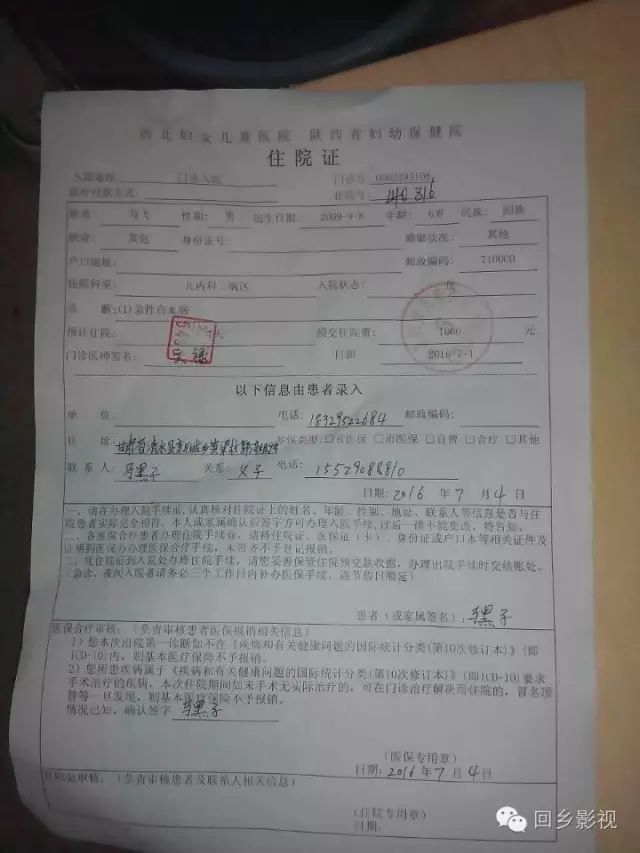 西北妇女儿童医院 陕西省妇幼保健院
住院证
入院途径 门诊入院 门诊号
医疗付款方式: 住院号: 240316
姓名: 马飞 性别: 男 出生日期 2009-9-8 年龄: 6岁 民族: 回族
职业: 其他 身份证号: 婚姻状况: 其他
户口地址: 邮政编码: 710000
住院科室: 儿内科二病区 入院状态:
诊 断:(1)急性白血病
预计住院: 天 预交住院费: 1000 元
门诊医师签名: 日期 2016-7-4
以下信息由患者录入
单 位: 电话: 18329522684 邮政编码:
住 址: 甘肃省清水县 医保类型:□省医保 □市医保 □自费 □合疗 □其他
联系人: 马黑子 关系: 父子 电话: 15529088810
日期: 2016 年 7 月 4 日
一、请在办理入院手续前,认真核对住院证上的姓名、年龄、性别、地址、联系人等信息是否与住
院患者实际完全相符。本人或家属确认后签字方可办理入院手续,过后一律不能更改,特告知。
二、各医保合疗患者办理住院手续前,请持住院证、医保证(卡)、身份证或户口本等相关证件及
证明到医保办办理医保合疗手续,未带齐不予登记报销。
三、凭住院证到入院处办理住院手续,请您妥善保管住院预交款收据,办理出院手续时交结账处。
(急诊、夜间入院者请务必三个工作日内补办医保手续,遇节假日顺延)
患者(或家属签名): 马黑子
医保合疗审核:(负责审核患者医保报销相关信息)
1)您本次出院第一诊断如不在《疾病和有关健康问题的国际统计分类(第10次修订本)》(即
ICD-10)内,则基本医疗保险不予报销。
2)您所患疾病属于《疾病和有关健康问题的国际统计分类(第10次修订本)》(即ICD-10)要求
手术治疗的疾病,本次住院期间如未手术无实际治疗的,可在门诊治疗解决而住院的,冒名顶
替等一旦发现,则基本医疗保险不予报销。
情况已知,确认签字 马黑子
(医保专用章)
日期: 2016 年 7 月 4 日
住院处审核:(负责审核患者及联系人相关信息)
(住院专用章)
日期:
回乡影视